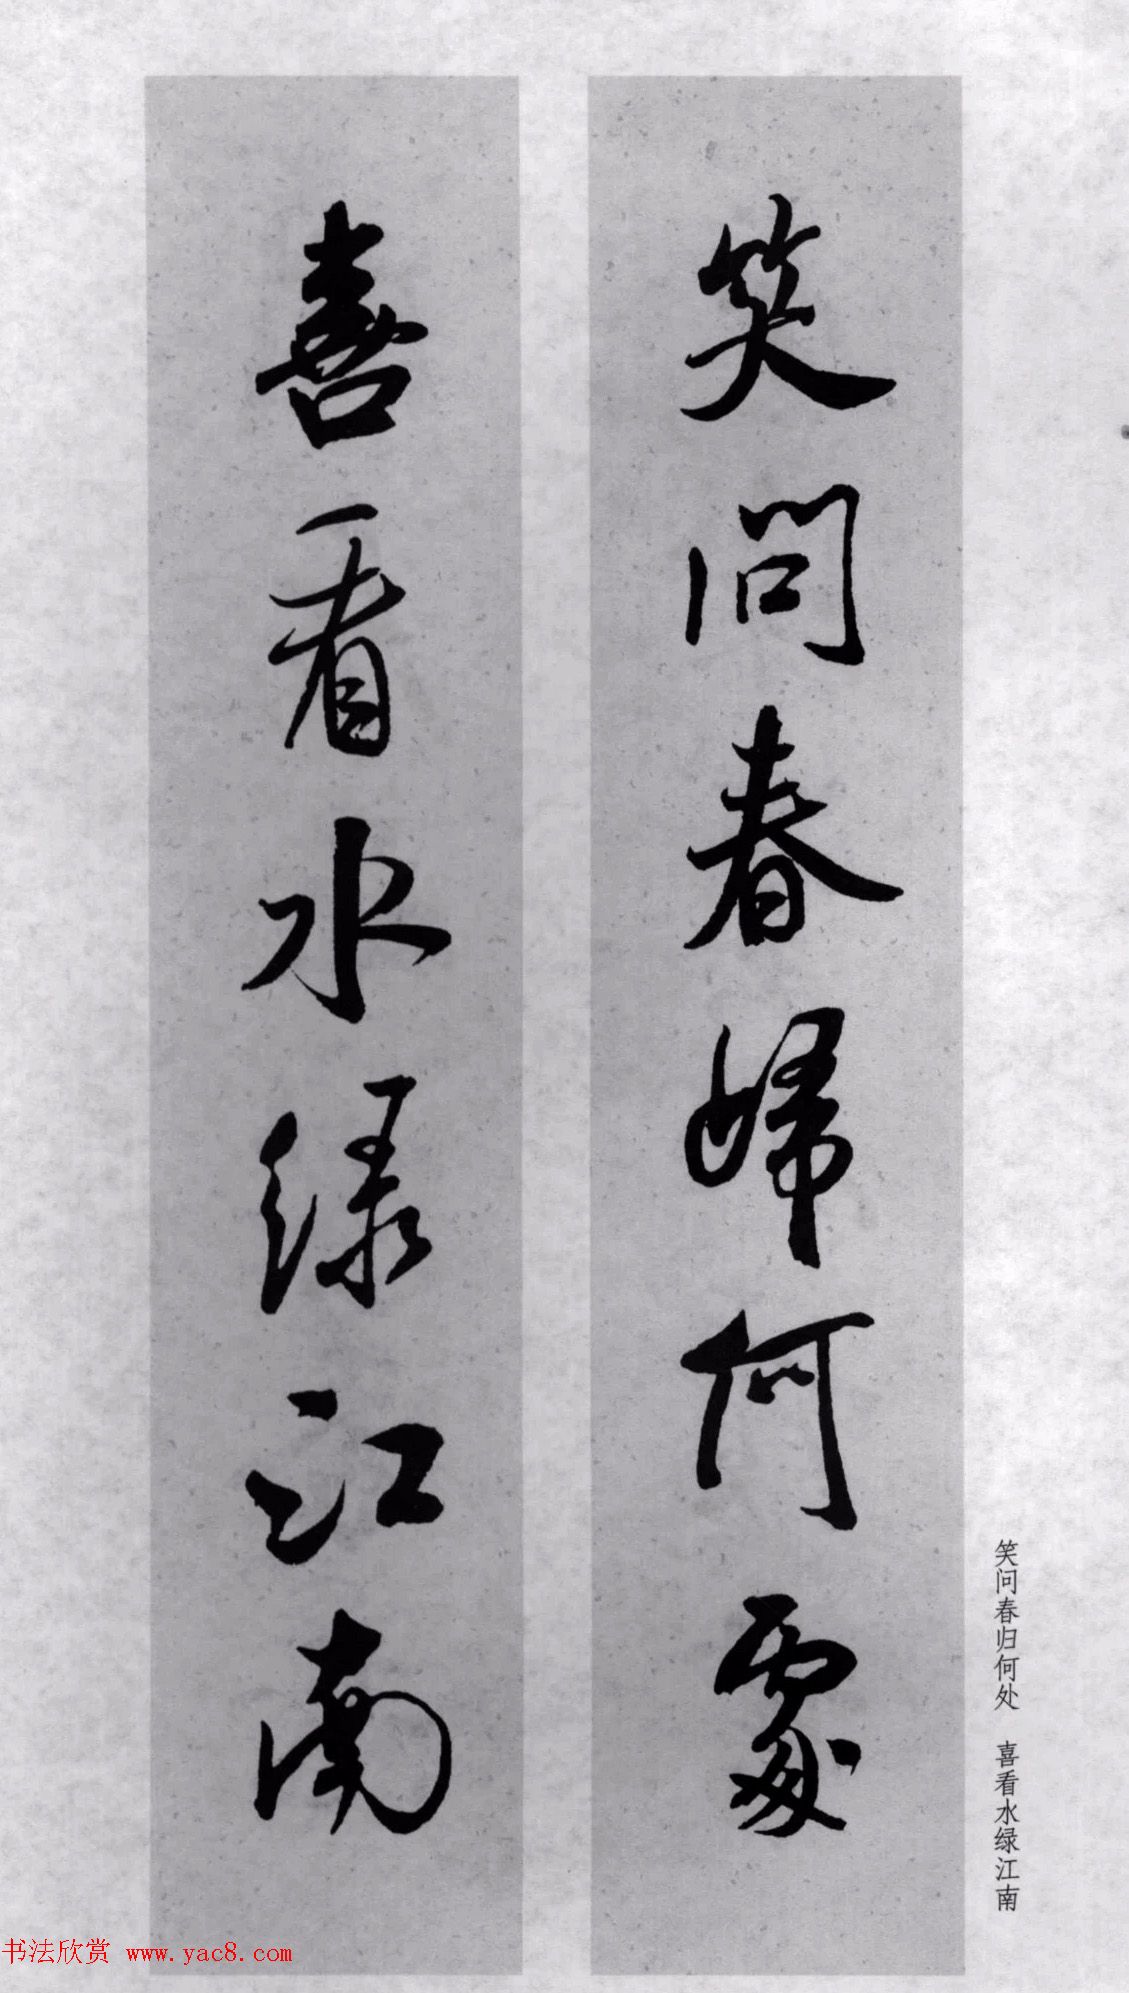 笑問春歸何處
喜看水绿江南
笑问春归何处 喜看水绿江南
书法欣赏 www.yac8.com